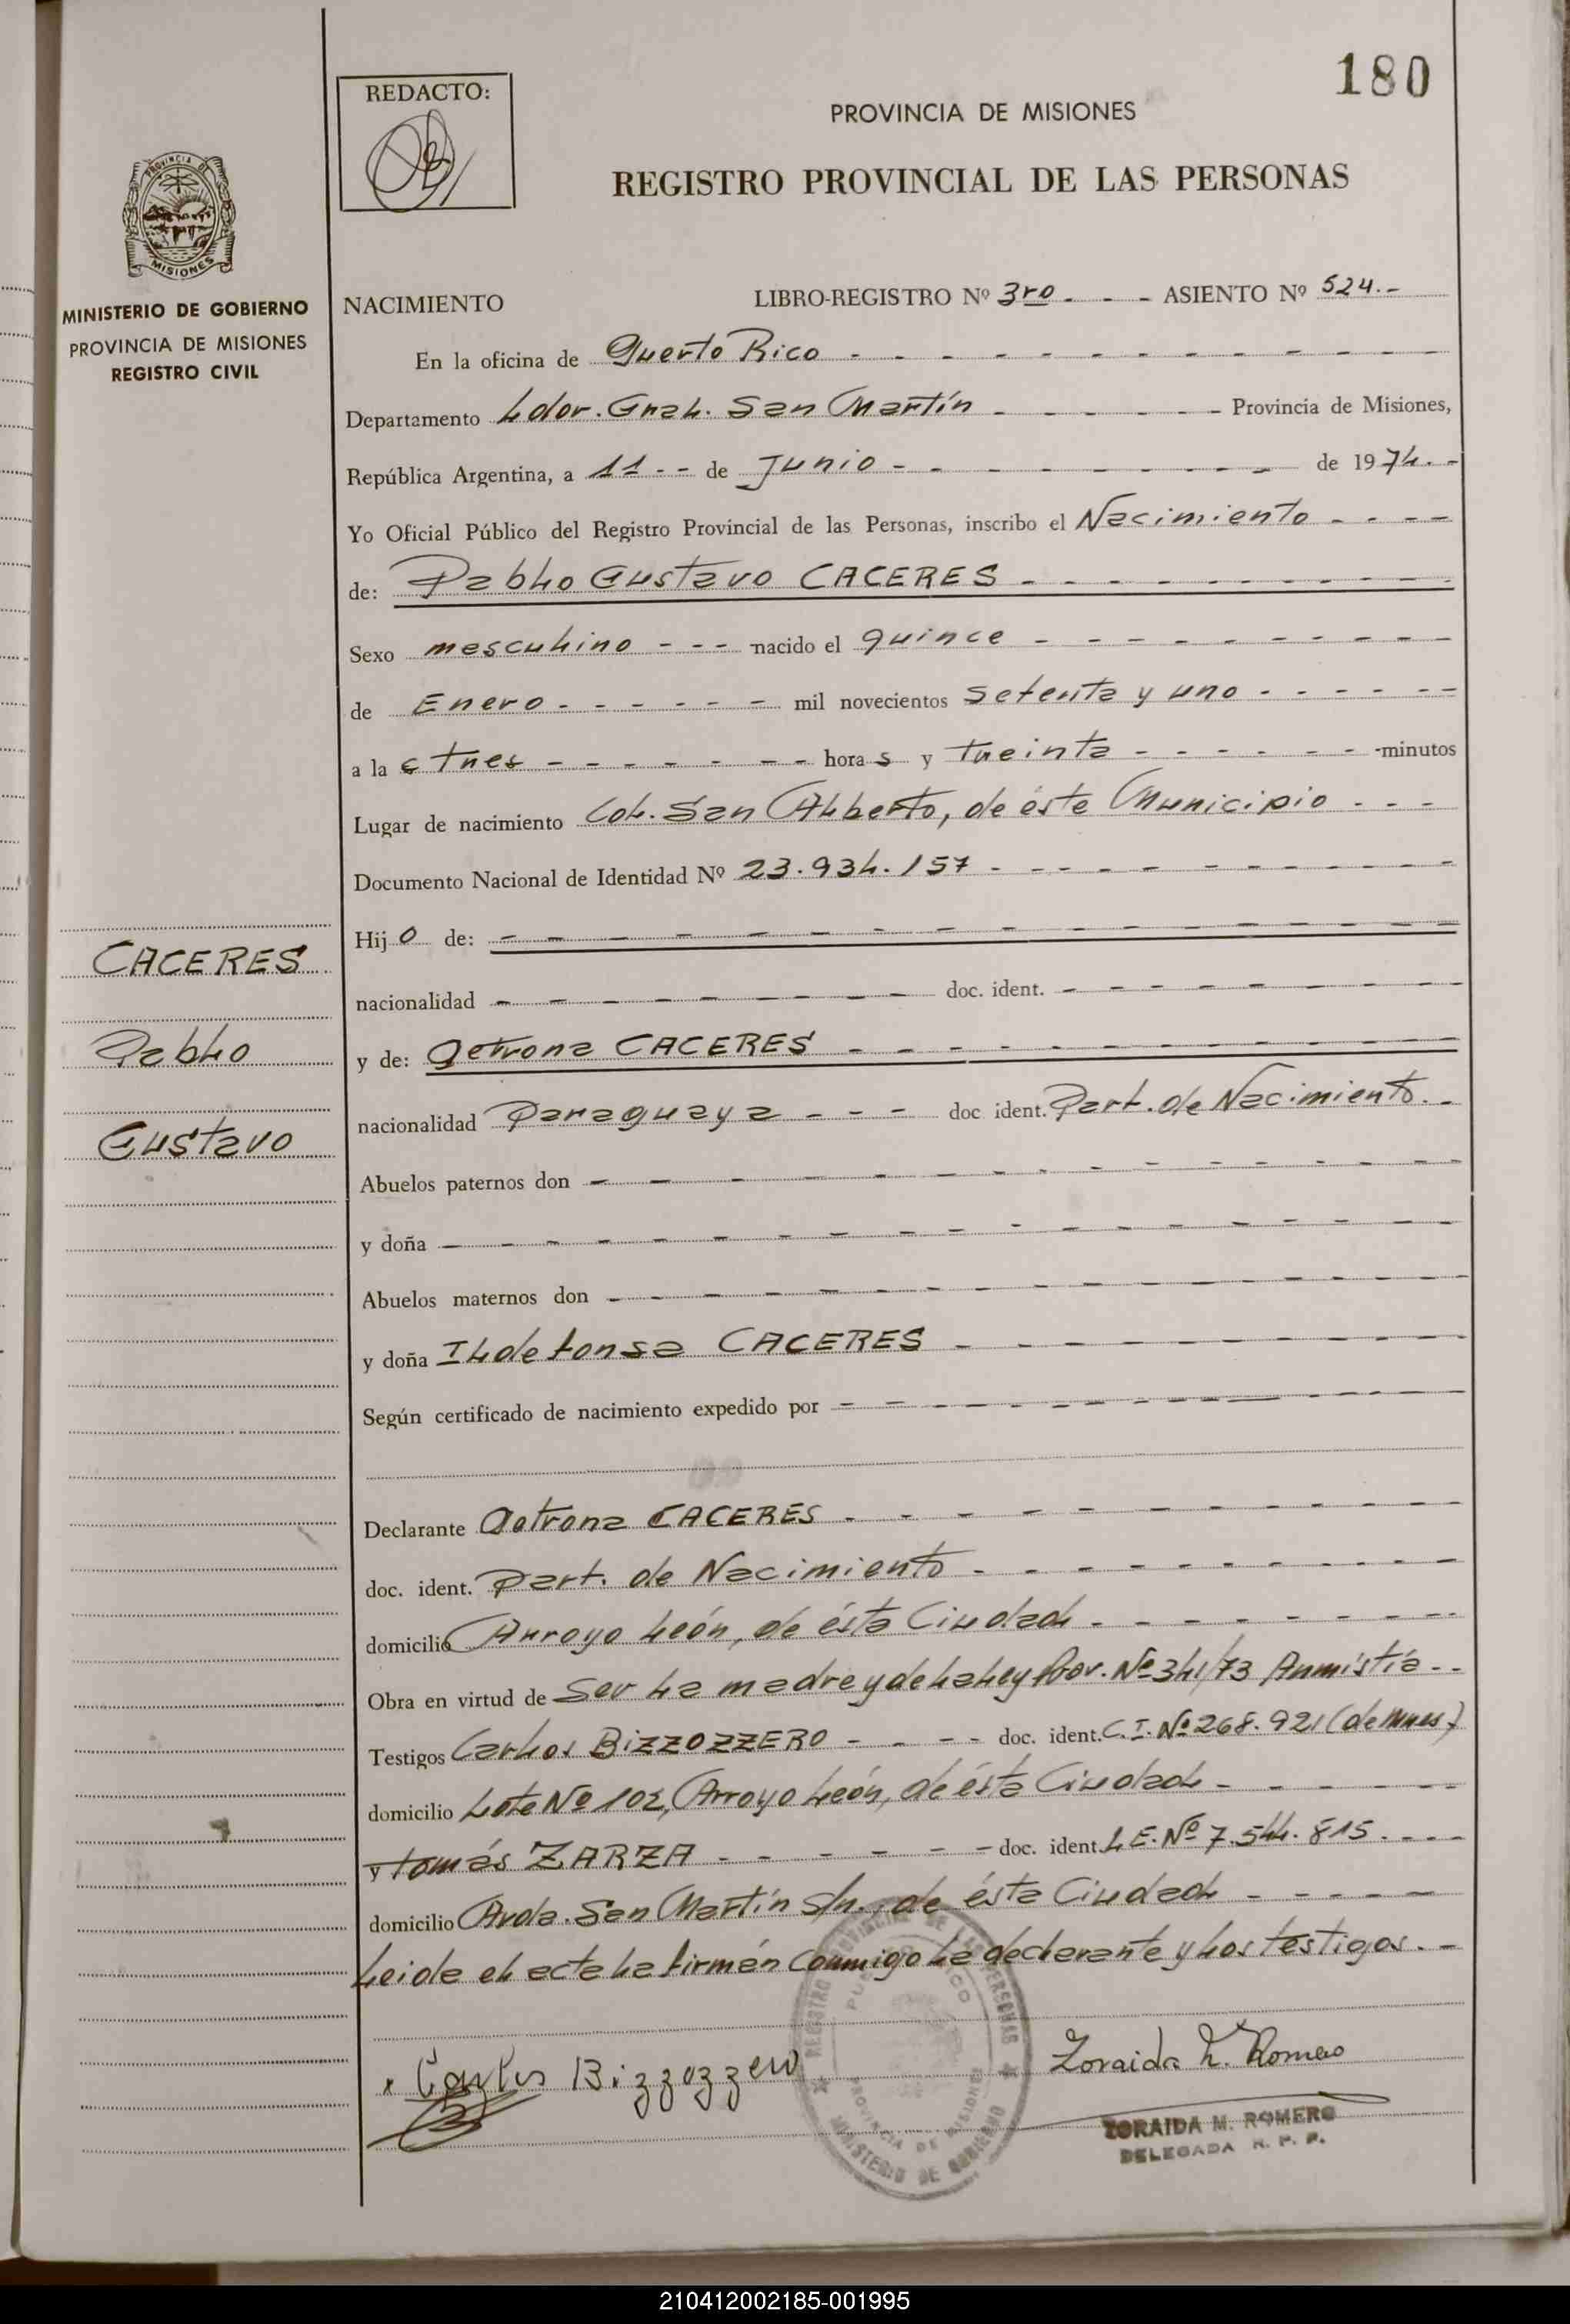 180
REDACTO:
PROVINCIA DE MISIONES
REGISTRO PROVINCIAL DE LAS PERSONAS
PROVINCIA DE
MISIONES
MINISTERIO DE GOBIERNO
PROVINCIA DE MISIONES
REGISTRO CIVIL
NACIMIENTO LIBRO-REGISTRO Nº 3ro - - - ASIENTO Nº 524.-
En la oficina de Puerto Rico
Departamento Ldor. Gral. San Martín Provincia de Misiones,
República Argentina, a 11 - - de Junio de 1974.-
Yo Oficial Público del Registro Provincial de las Personas, inscribo el Nacimiento
de: Pablo Gustavo CACERES
Sexo masculino - - - nacido el quince
de Enero mil novecientos setenta y uno
a las tres horas y treinta minutos
Lugar de nacimiento Col. San Alberto, de éste Municipio
Documento Nacional de Identidad Nº 23.934.157
Hijo de:
nacionalidad doc. ident.
y de: Petrona CACERES
nacionalidad Paraguaya - - - doc ident. Part. de Nacimiento.-
Abuelos paternos don
y doña
Abuelos maternos don
y doña Ildefonsa CACERES
Según certificado de nacimiento expedido por
Declarante Petrona CACERES
doc. ident. Part. de Nacimiento
domicilio Arroyo León, de ésta Ciudad
Obra en virtud de Ser la madre y de la Ley Prov. Nº 341/73 Anmistía - -
Testigos Carlos BIZZOZZERO - - - - doc. ident. C.I. Nº 268.921 (de Mnes.)
domicilio Lote Nº 102, Arroyo León, de ésta Ciudad
y Tomás ZARZA doc. ident. L.E. Nº 7.544.815.
domicilio Avda. San Martín s/n., de ésta Ciudad
Leida el acta la firman conmigo la declarante y los testigos.-
CACERES
Pablo
Gustavo
Carlos Bizzozzero
Zoraida M. Romero
ZORAIDA M. ROMERO
DELEGADA R. P. P.
REGISTRO PROVINCIAL DE LAS PERSONAS
PROVINCIA DE MISIONES
MINISTERIO DE GOBIERNO
210412002185-001995